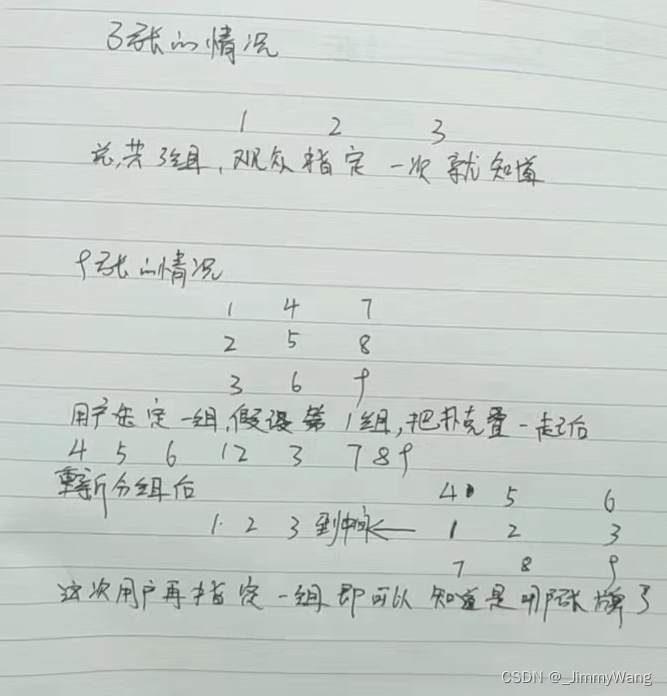 3张的情况
1 2 3
总共3组,观众指定一次就知道
9张的情况
1 4 7
2 5 8
3 6 9
用户指定一组,假设第1组,把扑克叠一起后
4 5 6 1 2 3 7 8 9
重新分组后
4 5 6
1 2 3 到中间 ← 1 2 3
7 8 9
这次用户再指定一组即可以知道是哪张牌了
CSDN @_JimmyWang